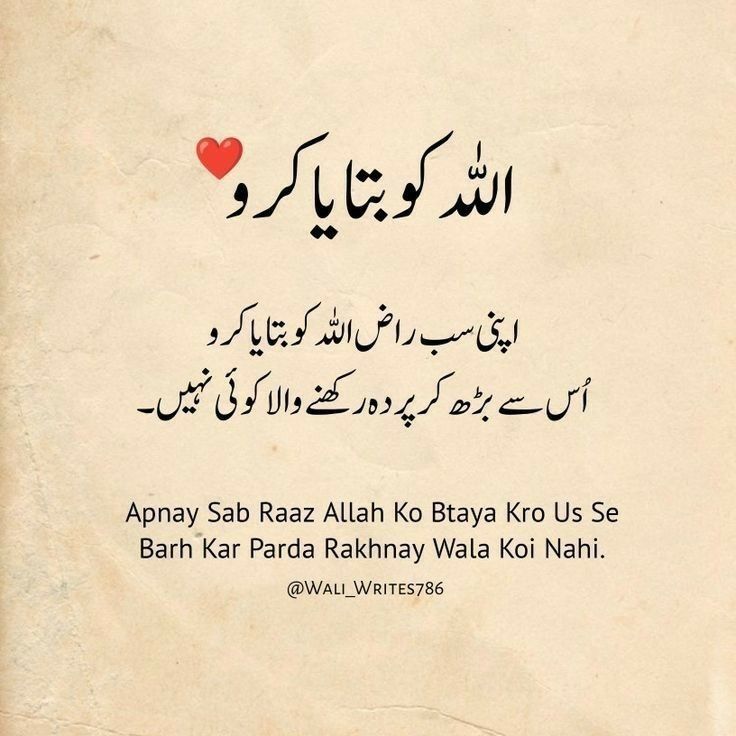 اللہ کو بتایا کرو❤️
اپنی سب راض اللہ کو بتایا کرو
اُس سے بڑھ کر پردہ رکھنے والا کوئی نہیں۔
Apnay Sab Raaz Allah Ko Btaya Kro Us Se
Barh Kar Parda Rakhnay Wala Koi Nahi.
@Wali_Writes786